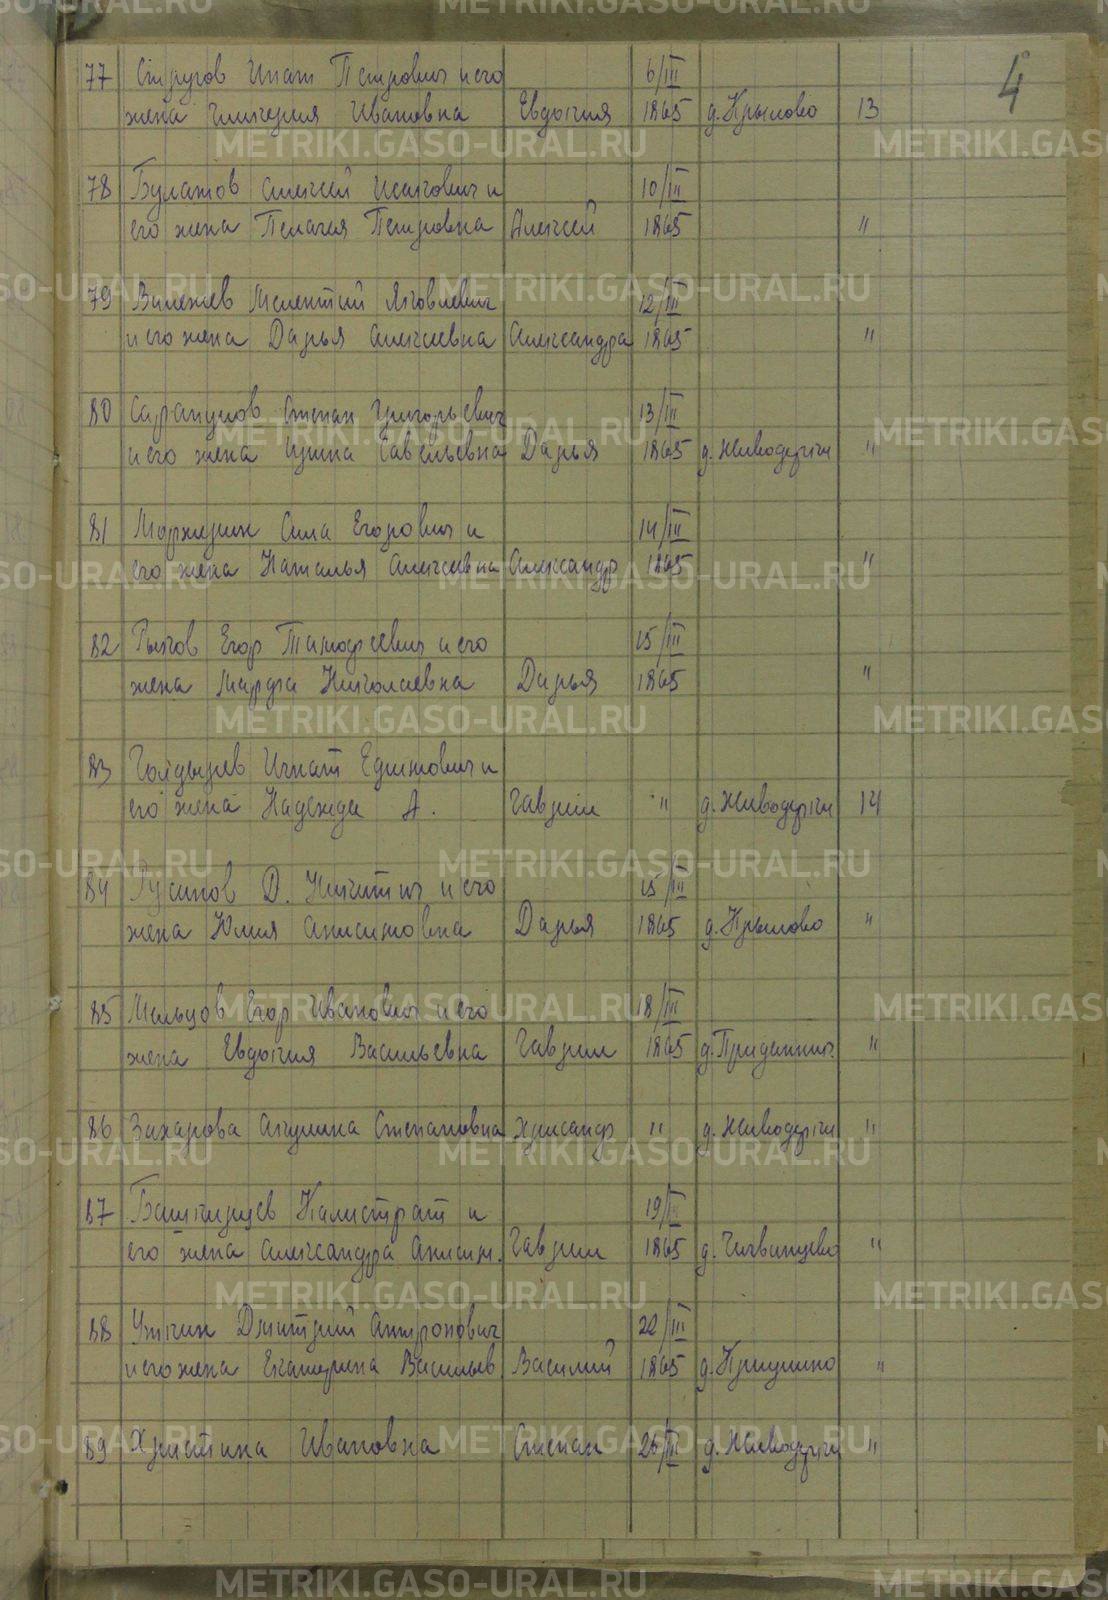 4
77 Стругов Ипат Петрович и его 6/III
жена Гликерия Ивановна Евдокия 1865 д. Крылово 13
78 Булатов Алексей Исакович и 10/III
его жена Пелагея Петровна Алексей 1865 "
79 Вилежев Мелентий Яковлевич 12/III
и его жена Дарья Алексеевна Александра 1865 "
80 Сарапулов Степан Григорьевич 13/III
и его жена Савельевна Дарья 1865 "
81 Сила Егорович и 14/III
его жена Наталья Алексеевна Александр 1865 "
82 Рыков Егор Тимофеевич и его 15/III
жена Марфа Николаевна Дарья 1865 "
83 Голдырев Игнат Едимович и
его жена Надежда А. Гаврил " 14
84 Русинов Д. Никитич и его 15/III
жена Юлия Анисимовна Дарья 1865 д. Крылово "
85 Мальцов Егор Иванович и его 18/III
жена Евдокия Васильевна Гаврил 1865 "
86 Захарова Акулина Степановна Хрисанф " "
87 Башкирцев Калистрат и 19/III
его жена Александра Анисим. Гаврил 1865 "
88 Уткин Дмитрий Антронович 22/III
и его жена Екатерина Васильев. Василий 1865 "
89 Христина Ивановна Степан 26/III "
METRIKI.GASO-URAL.RU